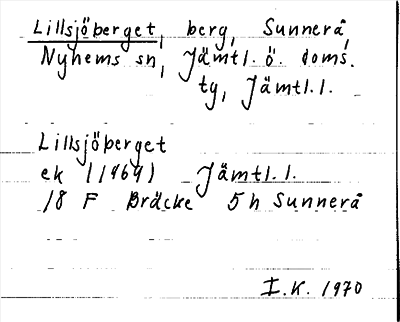 Lillsjöberget, berg, Sunnerå,
Nyhems sn, Jämtl. ö. doms.
tg, Jämtl. l.
Lillsjöberget
ek (1969) Jämtl. l.
18 F Bräcke 5h Sunnerå
I.K. 1970